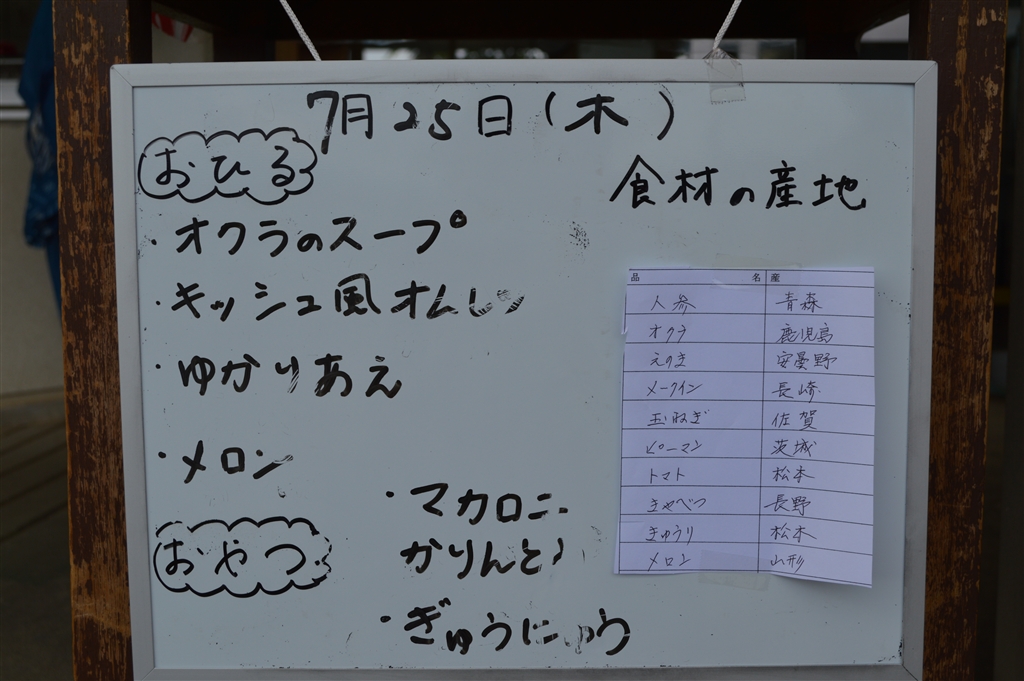 7月25日(木)
おひる
・オクラのスープ
・キッシュ風オムレツ
・ゆかりあえ
・メロン
おやつ
・マカロニ
かりんとう
・ぎゅうにゅう
食材の産地
品名 産
人参 青森
オクラ 鹿児島
えのき 安曇野
メークイン 長崎
玉ねぎ 佐賀
ピーマン 茨城
トマト 松本
きゃべつ 長野
きゅうり 松本
メロン 山形